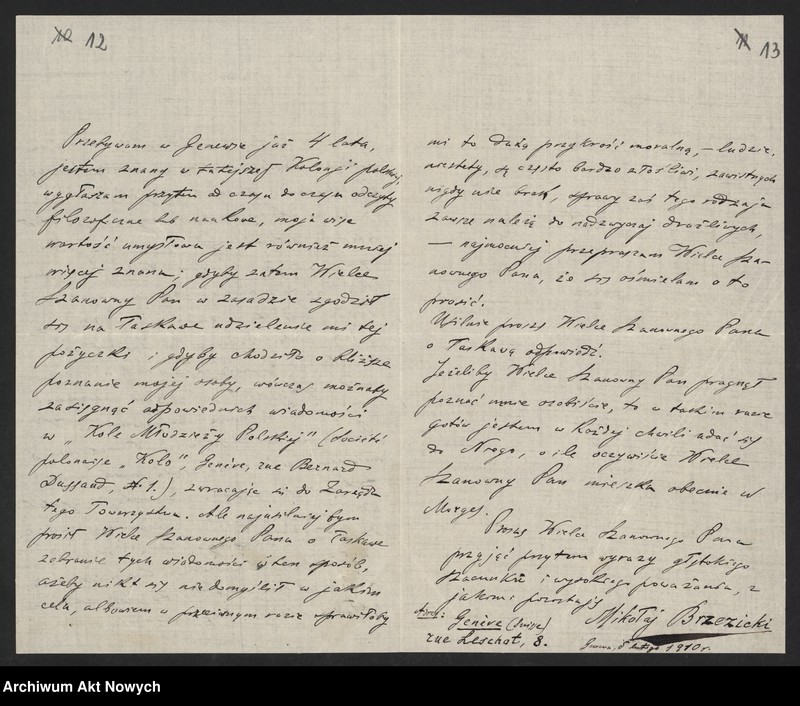 12 12
Przebywam w Genewie już 4 lata,
jestem znany w tutejszej Kolonji polskiej,
wygłaszam przytem od czasu do czasu odczyty
filozoficzne lub naukowe, moja więc
wartość umysłowa jest również mniej
więcej znana; gdyby zatem Wielce
Szanowny Pan w zasadzie zgodził
się na łaskawe udzielenie mi tej
pożyczki i gdyby chodziło o bliższe
poznanie mojej osoby, wówczas możnaby
zasięgnąć odpowiednich wiadomości
w „Kole Młodzieży Polskiej" (Société
polonaise „Koło", Genève, rue Bernard
Dussaud, № 1.), zwracając się do Zarządu
tego Towarzystwa. Ale najusilniej bym
prosił Wielce Szanownego Pana o łaskawe
zebranie tych wiadomości w ten sposób,
ażeby nikt się nie domyślił w jakim
celu, albowiem w przeciwnym razie sprawiłoby
13
mi to dużą przykrość moralną, – ludzie,
niestety, są często bardzo złośliwi, zawistnych
nigdy nie brak, sprawy zaś tego rodzaju
zawsze należą do nadzwyczaj drażliwych,
— najmocniej przepraszam Wielce Sza-
nownego Pana, że się ośmielam o to
prosić.
Usilnie proszę Wielce Szanownego Pana
o łaskawą odpowiedź.
Jeżeliby Wielce Szanowny Pan pragnął
poznać mnie osobiście, to w takim razie
gotów jestem w każdej chwili udać się
do Niego, o ile oczywiście Wielce
Szanowny Pan mieszka obecnie w
Morges.
Proszę Wielce Szanownego Pana
przyjąć przytem wyrazy głębokiego
szacunku i wysokiego poważania, z
jakiemi pozostaję
Mikołaj Brzezicki
Adres: Genève (Suisse)
rue Leschot, 8.
Genewa, 5 lutego 1910 r.
Archiwum Akt Nowych